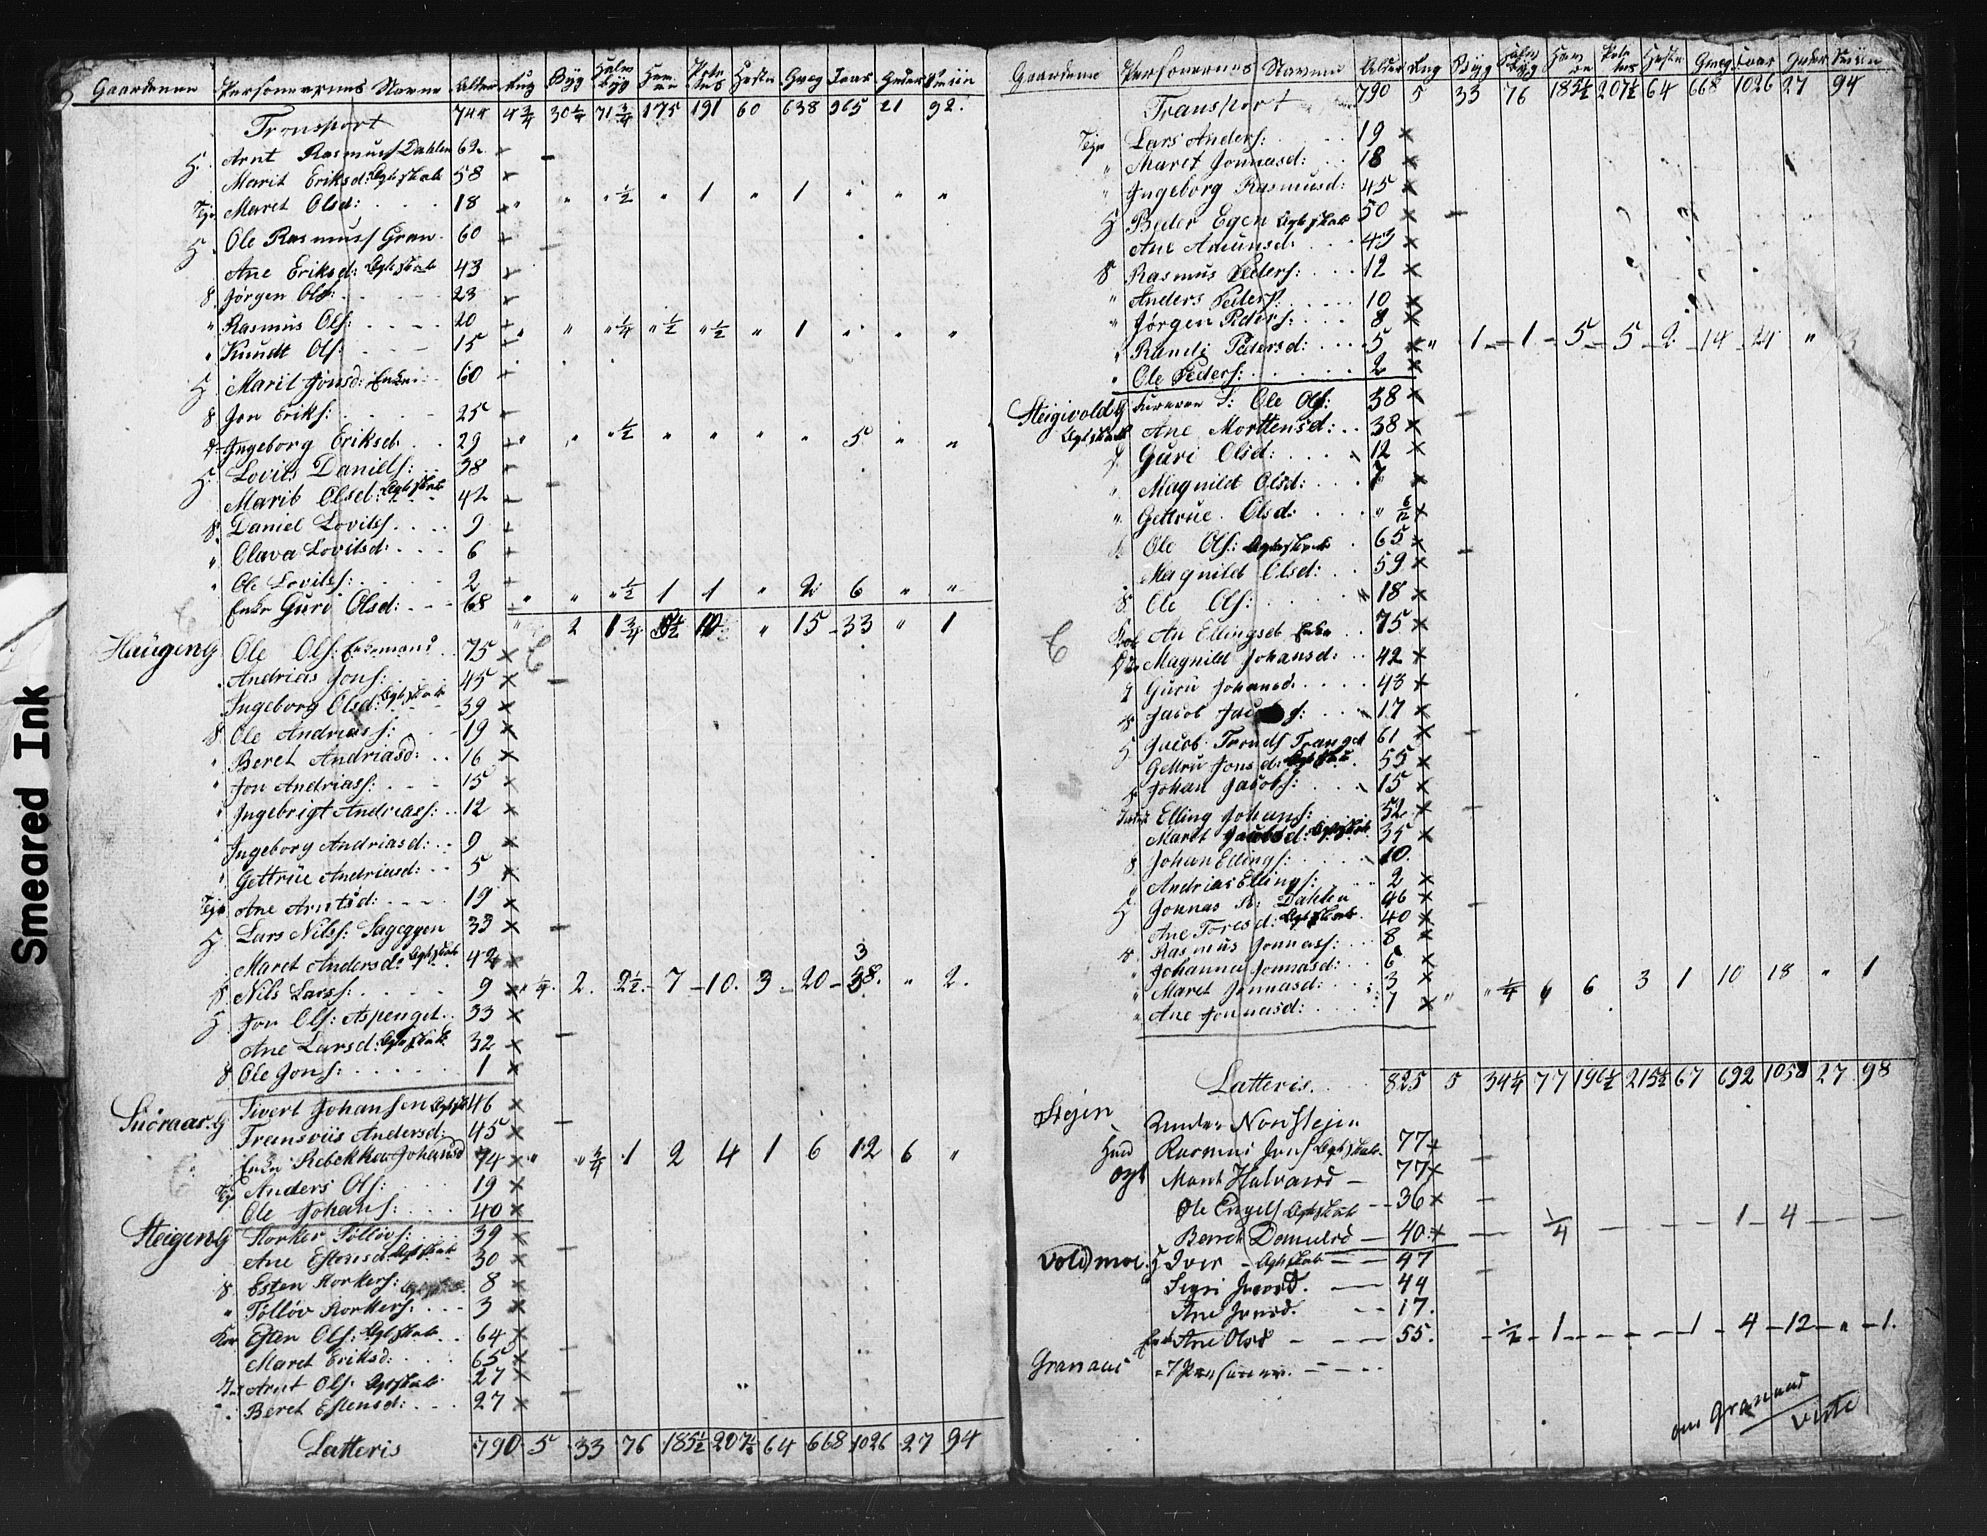 Smeared Ink
Gaardenne Personernes Navne Alder Rug Byg Heste Qvæg Faar Geder Sviin
Transport 744 4 3/4 30 1/4 71 3/4 175 191 60 638 965 21 92.
H. Arnt Rasmuss Dahlen 62 +
Marit Eriksd: Egteskab 58 +
Tje Maret Olsd: 18 + " " " 1/2 " 1 " 1 " " "
H. Ole Rasmuss Gran 60 +
Ane Eriksd: Egteskab 43 +
8 Jørgen Ols: 23 +
" Rasmus Ols: 20 + " " " 1/4 " 1/2 " 1/2 " 1 " " "
" Knudt Ols: 15 +
H Marit Jonsd: Enke 60 +
8 Jon Eriks: 25 +
Ingeborg Eriksd. 29 + " " " 1/2 " " " " 5 " "
H Lovits Daniels: 38 +
Marit Olsd: Egteskab 42 +
8. Daniel Lovitss 9 +
" Olava Lovitsd: 6 +
" Ole Lovitss: 2 +
Enke Guri Olsd: 68 + " " " 1/2 1 1 " 2 6 " "
" 2 1 3/4 10 " 15 33 " 1
Haugen G Ole Ols: Enkemand 75 ×
Andrias Jons: 45 ×
Ingeborg Olsd: Egteskab 39 ×
8 Ole Andrias: 19 ×
" Beret Andriasd: 16 ×
" Jon Andriass: 15 ×
" Ingebrigt Andriass: 12 ×
" Ingeborg Andriasd: 9 ×
" Gettrue Andriasd: 5 ×
Teje Ane Arntsd: 19 ×
H Lars Nilss: Sageggen 33 ×
Maret Andersd: Egteskab 42 ×
8 Nils Larss: 9 × 1/4 2 2 1/2 7 10 3 20 38 " 2.
H Jon Ols: Aspenget 33 ×
Ane Larsd: Egteskab 32 ×
8 Ole Jons: 1 ×
Snøraas G Sivert Johansen 46 ×
Andersd: 45 ×
Enke Rebekka Johansd 74 × " " 3/4 1 2 4 1 6 12 6 "
Tje Anders Ols: 19 ×
Ole Johans: 40 ×
Steigen G Storker Tølløvs: 39 ×
Ane Estensd Egteskab 30 ×
8 Esten Storkers: 8 ×
" Tølløv Storkers: 3 ×
Esten Ols: Egteskab 64 ×
Maret Eriksd: 65 ×
Arnt Ols: Egteskab 27 ×
Beret Estensd: 27 ×
Latteris 790 5 33 76 185 1/2 207 1/2 64 668 1026 27 94
Gaardene Personernes Navne Alder Rug Byg Heste Qvæg Faar Geder Sviin
Transport 790 5 33 76 185 1/2 207 1/2 64 668 1026 27 94
Teje Lars Anders: 19 ×
" Maret Jonnasd: 18 ×
" Ingeborg Rasmusd: 45 ×
H Peder Egen Egteskab 50 ×
Ane Amunsd: 43 ×
8 Rasmus Peders: 12 ×
" Anders Peders: 10 ×
" Jørgen Peders: 8 ×
" Randi Pedersd: 5 × " 1 1 5 5 2 14 24 " 3
" Ole Peders: 2 ×
Steigivold G Ole Ols: 38 ×
Egteskab Ane Mortensd: 38 ×
Guri Olsd: 12 ×
" Magnild Olsd: 7 ×
" Gettrue Olsd: " 6/12 ×
Ole Ols: Egteskab 65 ×
Magnild Olsd: 59 ×
8 Ole Ols: 18 ×
An Ellingsd Enke 75 ×
Magnild Johansd: 42 ×
Guru Johansd. 43 ×
Jacob Jacobs: 17 ×
H Jacob Tronds Tranget 61 ×
Gettru Jonsd: Egteskab 55 ×
Johan Jacobs: 15 ×
Elling Johans: 52 ×
Maret Jacobsd: Egteskab 35 ×
8 Johan Ellings: 10.
" Andrias Ellings: 2 ×
H Jonnas R: Dahlen 46 ×
Ane Toresd: Egteskab 40 ×
Rasmus Jonnass: 8 ×
" Johanna Jonnasd: 6 ×
" Maret Jonnasd: 3 ×
" Ane Jonnasd: 1 × " " 1/4 6 6 3 1 10 18 " 1
Latteris 825 5 34 1/4 77 196 1/2 215 1/2 67 692 1058 27 98
Stejen Under Nordstejen
Huusd Rasmus Jons Egteskab 77 +
Marit Halvard 77 +
Ole Engels Egteskab 36 ×
Beret Danielsd 40 + 1/4 1 4
Voldmoe. H Iver Egteskab 47
Sigri Iversd. 44
Ane Iversd. 17.
Enke Ane Olsd 55. 1/2 1 1 4 12 " 1.
Granaas 7 Personer.
om Granaas
Viste